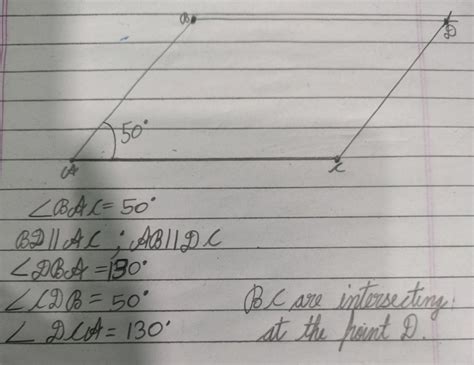 B
D
50°
A
C
∠BAC = 50°
BD || AC ; AB || DC
∠DBA = 130°
∠CDB = 50°
∠DCA = 130°
BC are intersecting
at the point D.